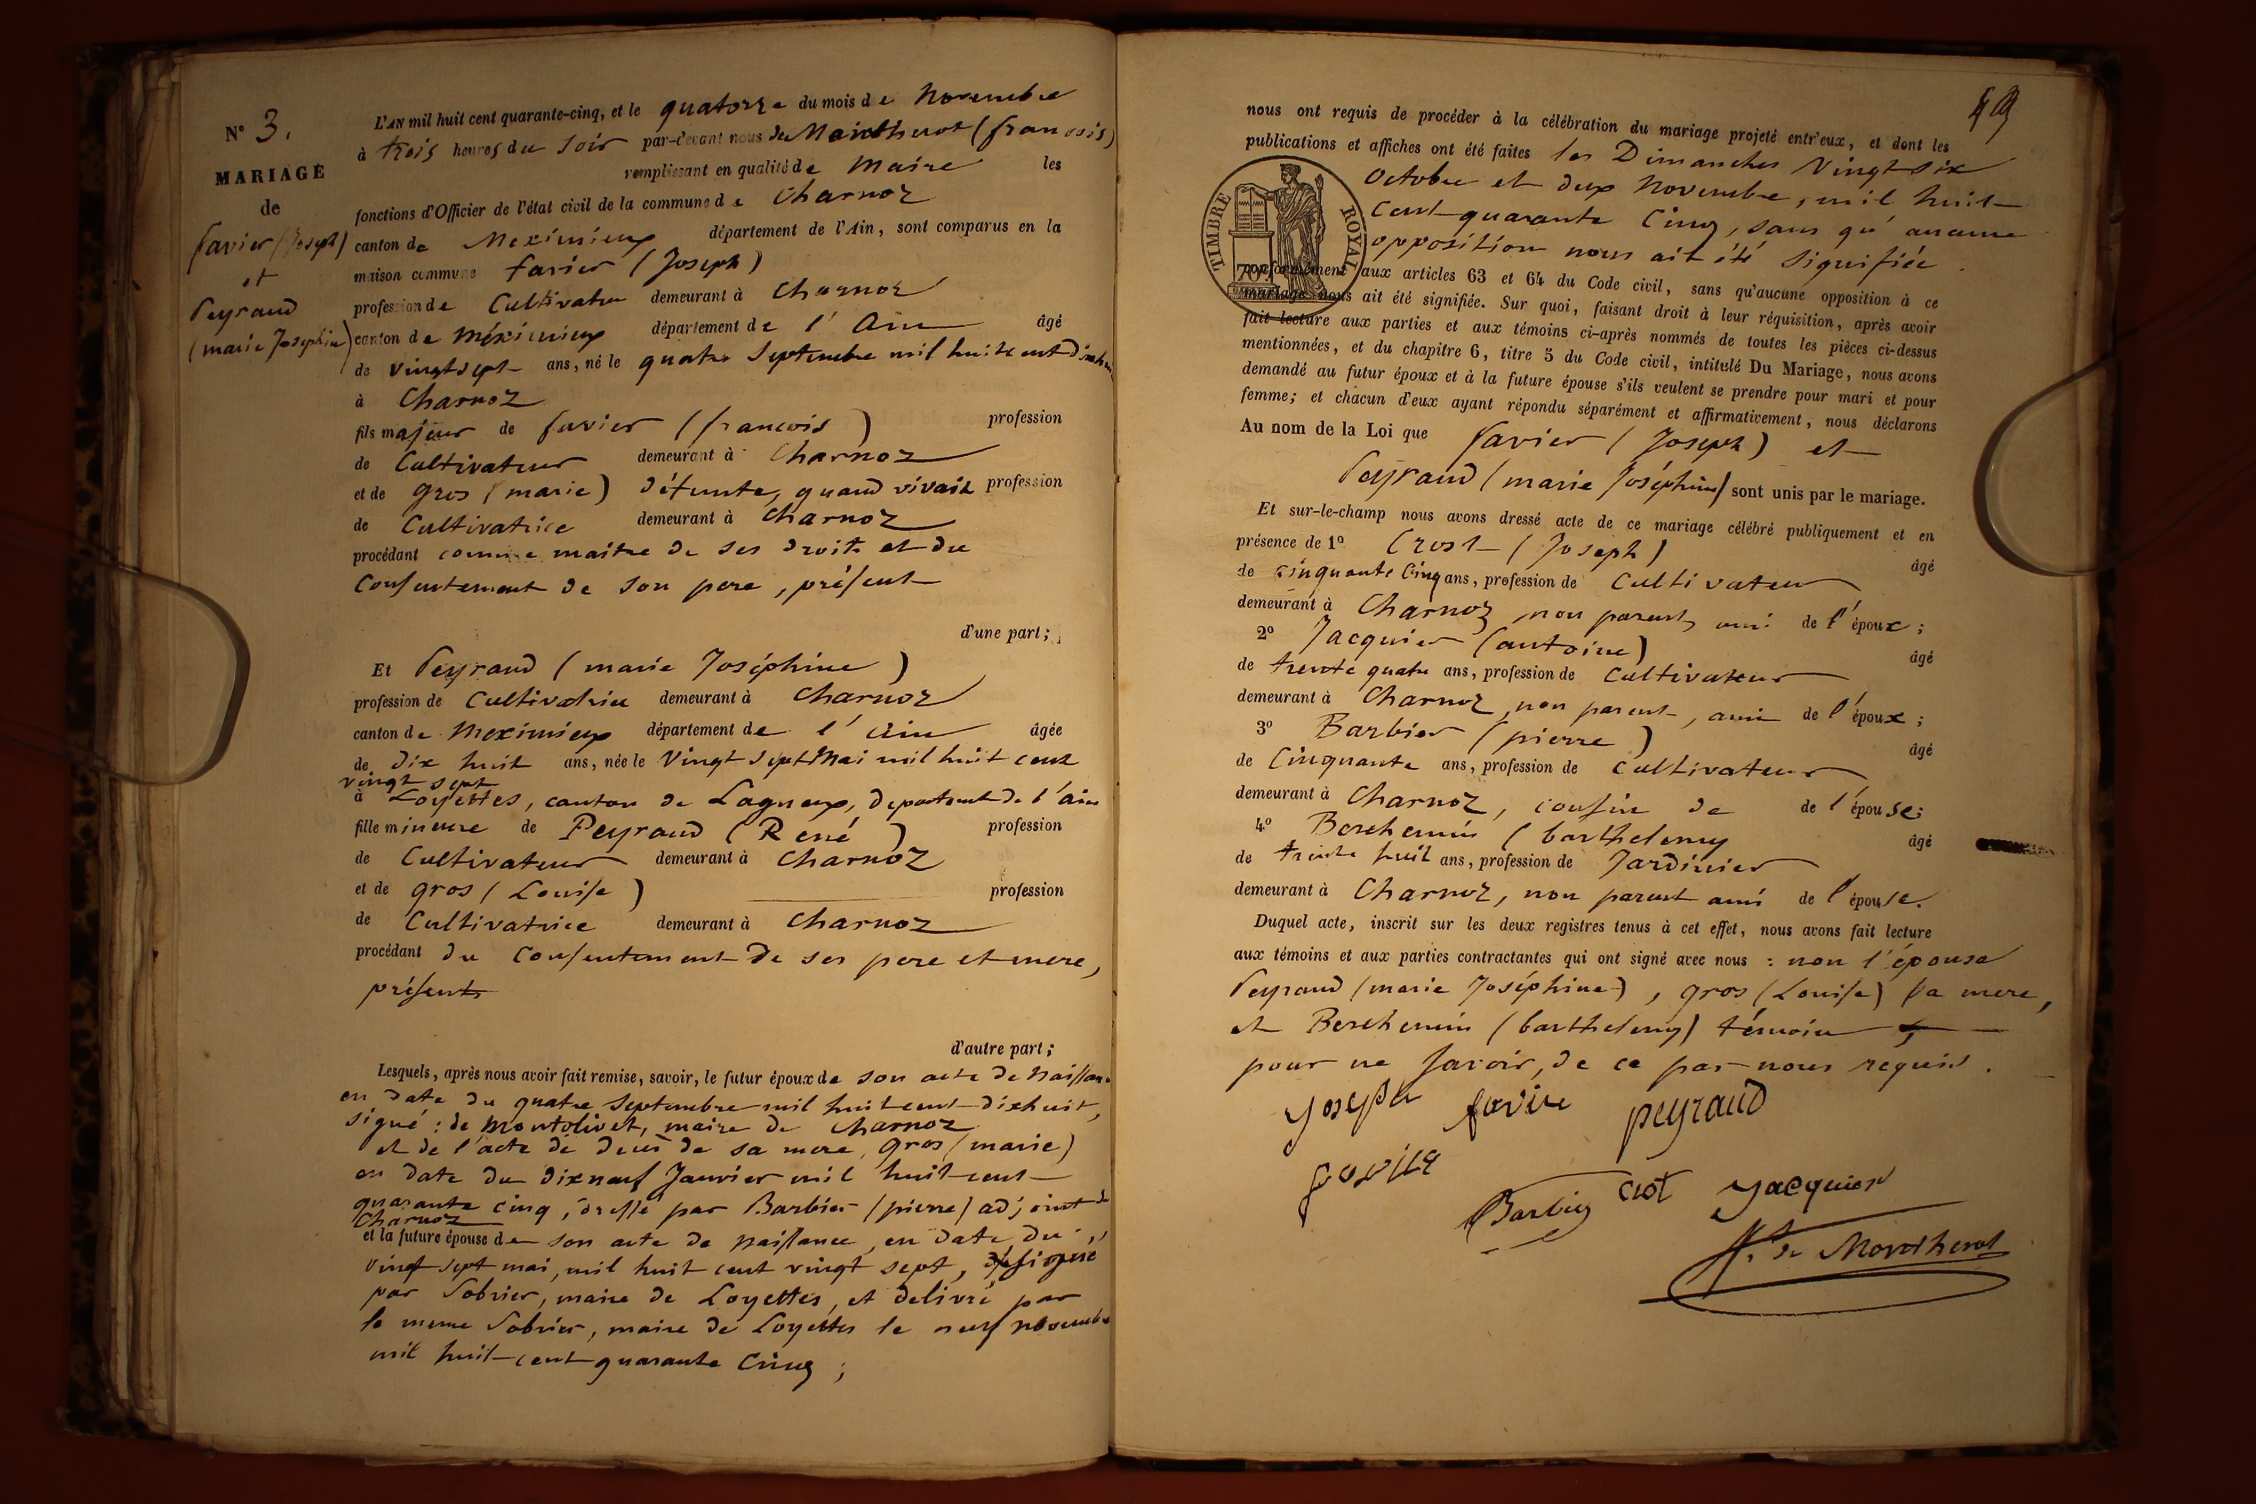 N° 3.
MARIAGE
de
favier (Joseph)
et
Peyraud
(marie Joséphine)
L'AN mil huit cent quarante-cinq, et le quatorze du mois de Novembre
à trois heures du soir par-devant nous de Montherot (francois)
remplissant en qualité de Maire les
fonctions d'Officier de l'état civil de la commune de Charnoz
canton de Meximieux département de l'Ain, sont comparus en la
maison commune favier (Joseph)
profession de Cultivateur demeurant à Charnoz
canton de Méximieux département de l'Ain âgé
de vingt sept ans, né le quatre Septembre mil huit cent dixhuit
à Charnoz
fils majeur de favier (francois) profession
de Cultivateur demeurant à Charnoz
et de gros (marie) défunte, quand vivait profession
de Cultivatrice demeurant à Charnoz
procédant comme maitre de ses droits et du
Consentement de son pere, présent
d'une part;
Et Peyraud (marie Joséphine)
profession de Cultivatrice demeurant à Charnoz
canton de Meximieux département de l'Ain âgée
de dix huit ans, née le Vingt sept Mai mil huit cent
vingt sept
à Loyettes, canton de Lagneux, departement de l'ain
fille mineure de Peyraud (René) profession
de Cultivateur demeurant à Charnoz
et de gros (Louise) profession
de Cultivatrice demeurant à Charnoz
procédant du Consentement de ses pere et mere,
présents
d'autre part;
Lesquels, après nous avoir fait remise, savoir, le futur époux de son acte de naissance
en date du quatre Septembre mil huit cent dixhuit,
signé: de Montolivet, maire de Charnoz
et de l'acte de decès de sa mere, gros (marie)
en date du dixneuf Janvier mil huit cent
quarante cinq, dressé par Barbier (pierre) adjoint de
Charnoz
et la future épouse de son acte de naissance, en date du
vingt sept mai, mil huit cent vingt sept, signé
par Sobrier, maire de Loyettes, et delivré par
le meme Sobrier, maire de Loyettes le neuf novembre
mil huit cent quarante Cinq;
49
nous ont requis de procéder à la célébration du mariage projeté entr'eux, et dont les
publications et affiches ont été faites les Dimanches Vingt six
Octobre et deux Novembre, mil huit
Cent quarante Cinq, sans qu'aucune
opposition nous ait été signifiée.
TIMBRE ROYAL
conformément aux articles 63 et 64 du Code civil, sans qu'aucune opposition à ce
mariage nous ait été signifiée. Sur quoi, faisant droit à leur réquisition, après avoir
fait lecture aux parties et aux témoins ci-après nommés de toutes les pièces ci-dessus
mentionnées, et du chapitre 6, titre 5 du Code civil, intitulé Du Mariage, nous avons
demandé au futur époux et à la future épouse s'ils veulent se prendre pour mari et pour
femme; et chacun d'eux ayant répondu séparément et affirmativement, nous déclarons
Au nom de la Loi que favier (Joseph) et
Peyraud (marie Joséphine) sont unis par le mariage.
Et sur-le-champ nous avons dressé acte de ce mariage célébré publiquement et en
présence de 1° Crost (Joseph) âgé
de cinquante Cinq ans, profession de Cultivateur
demeurant à Charnoz non parent, ami de l'époux;
2° Jacquier (antoine) âgé
de trente quatre ans, profession de Cultivateur
demeurant à Charnoz, non parent, ami de l'époux;
3° Barbier (pierre) âgé
de Cinquante ans, profession de Cultivateur
demeurant à Charnoz, cousin de de l'épouse;
4° Berchemin (barthelemy âgé
de trente huit ans, profession de Jardinier
demeurant à Charnoz, non parent ami de l'épouse.
Duquel acte, inscrit sur les deux registres tenus à cet effet, nous avons fait lecture
aux témoins et aux parties contractantes qui ont signé avec nous : non l'épouse
Peyraud (marie Joséphine), gros (Louise) sa mere,
et Berchemin (barthelemy) témoin
pour ne savoir, de ce par nous requis.
Joseph favier peyraud
favier
Barbier crot Jacquier
f. de Montherot